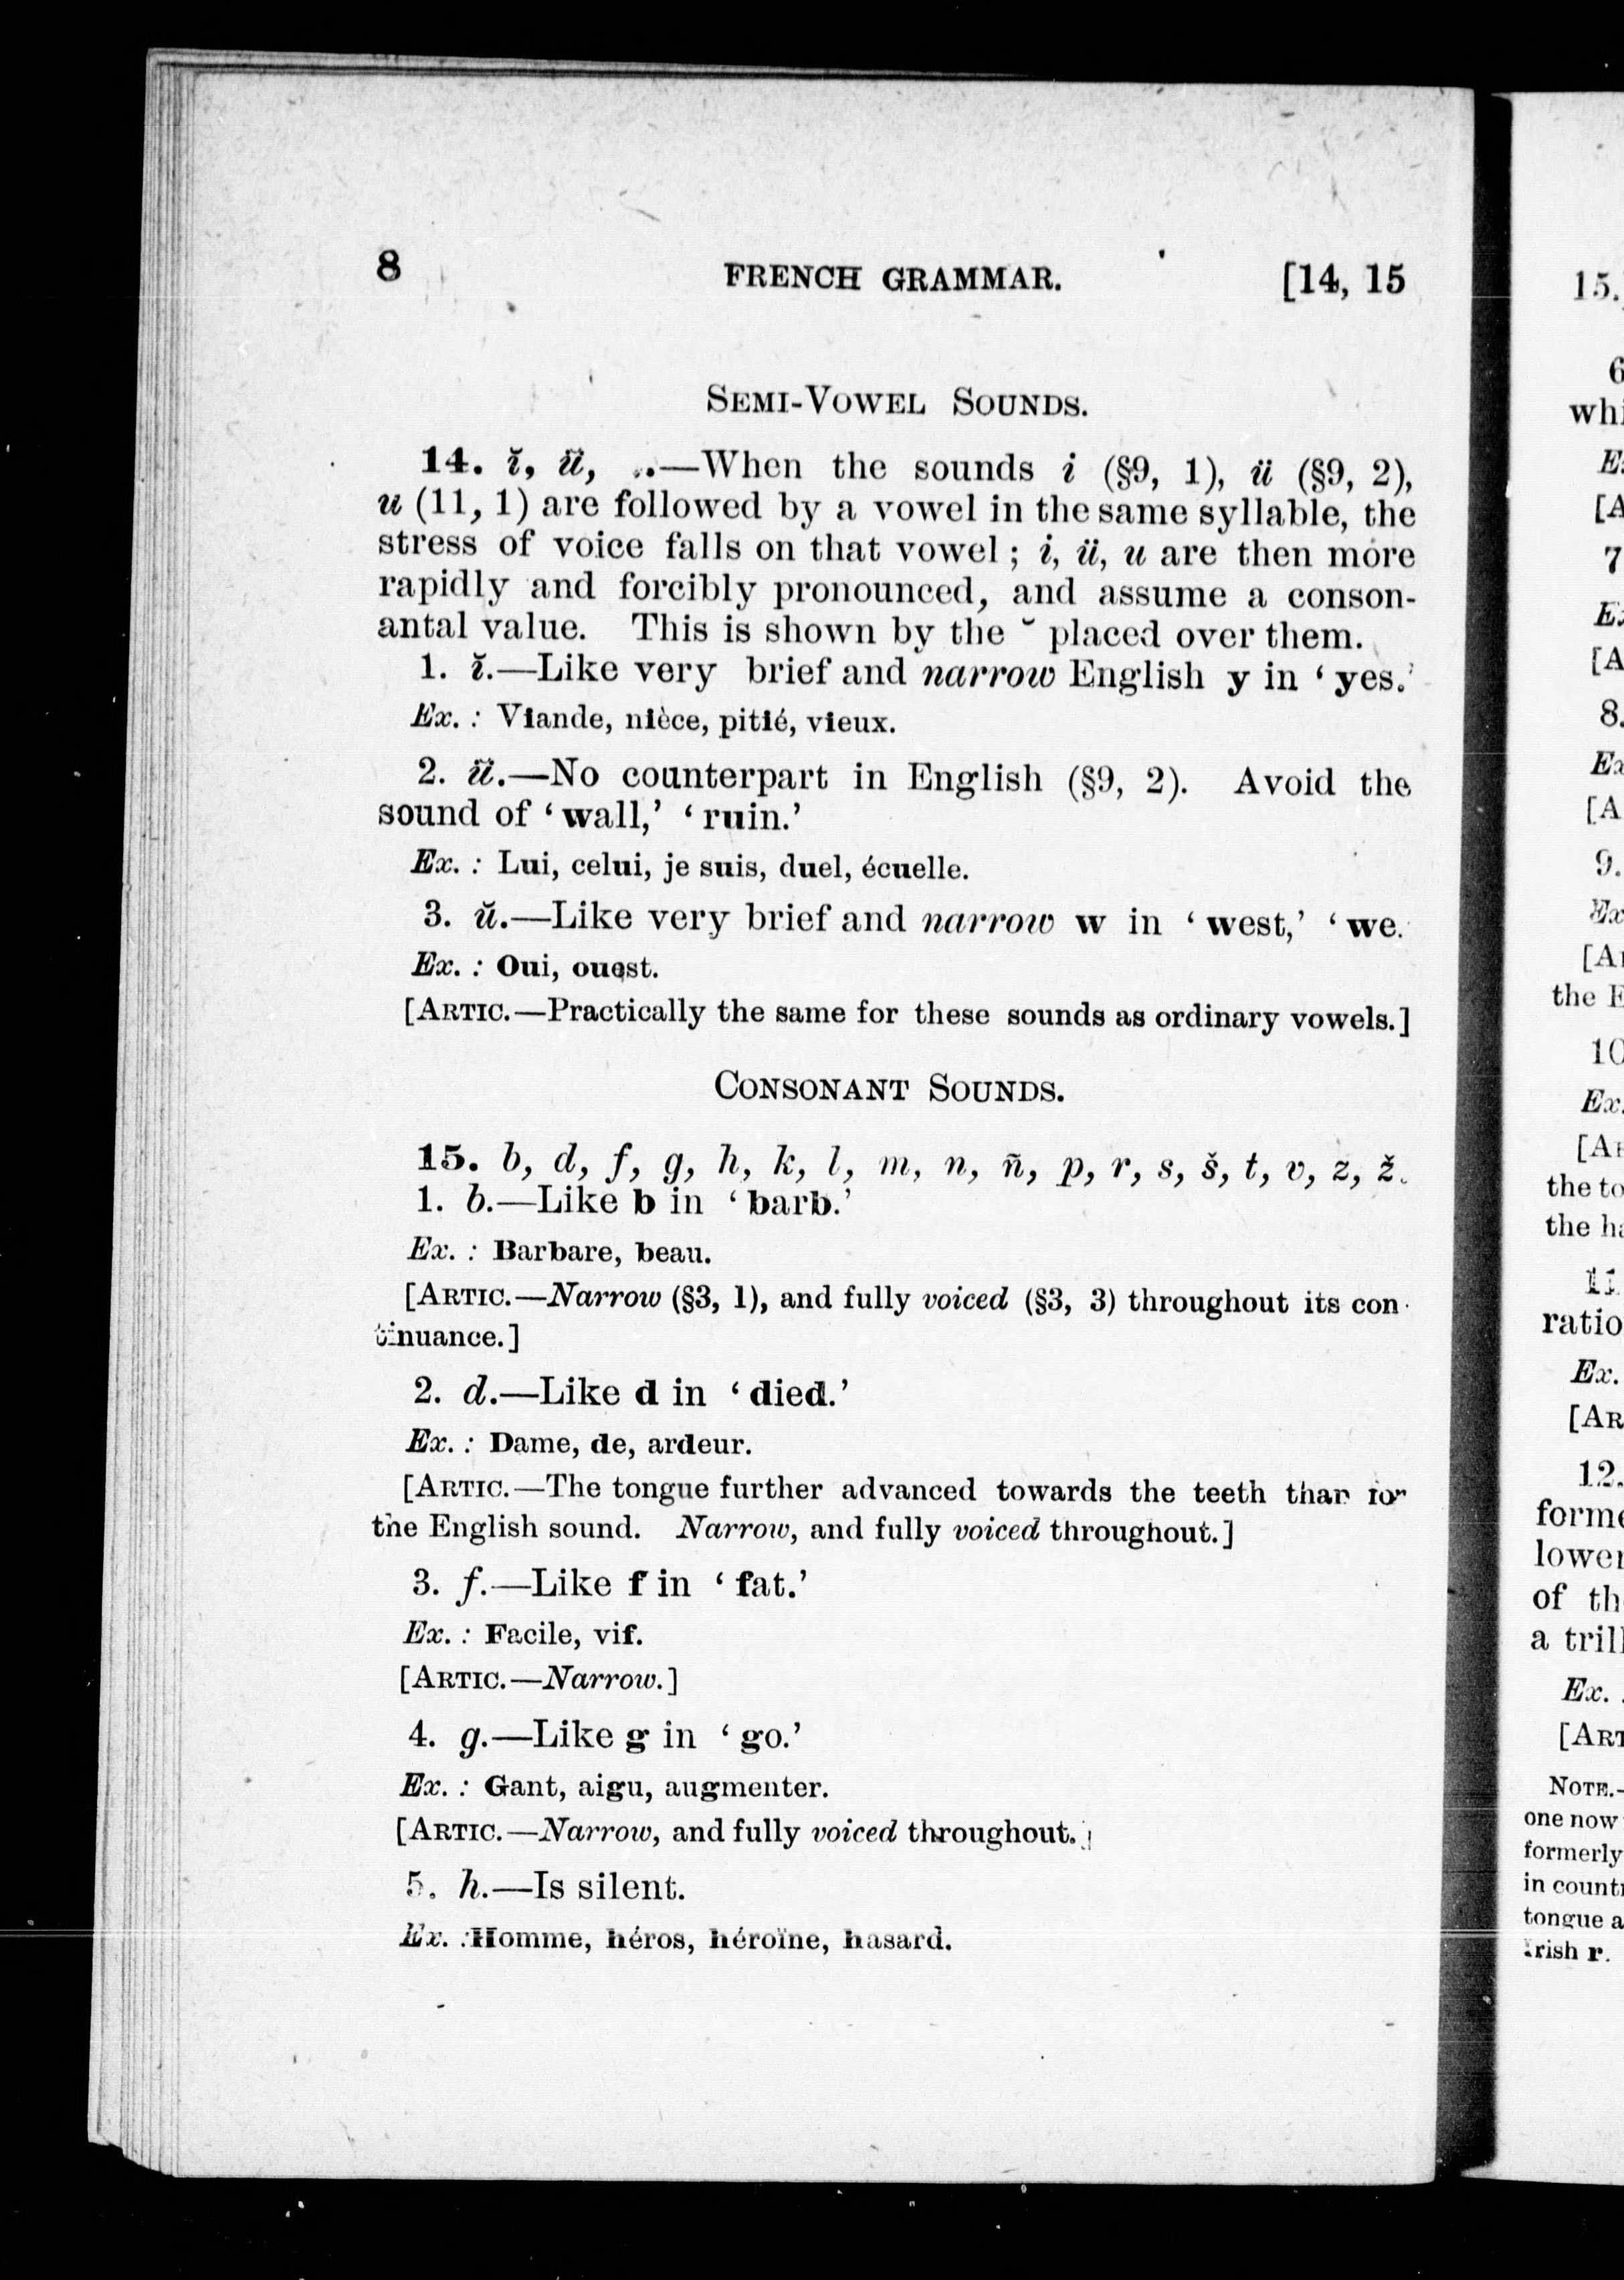 8 FRENCH GRAMMAR. [14, 15
SEMI-VOWEL SOUNDS.
14. ĭ, ü̆, ..—When the sounds i (§9, 1), ü (§9, 2),
u (11, 1) are followed by a vowel in the same syllable, the
stress of voice falls on that vowel ; i, ü, u are then more
rapidly and forcibly pronounced, and assume a conson-
antal value. This is shown by the ˘ placed over them.
1. ĭ.—Like very brief and narrow English y in ‘ yes.’
Ex. : Viande, nièce, pitié, vieux.
2. ü̆.—No counterpart in English (§9, 2). Avoid the
sound of ‘ wall,’ ‘ ruin.’
Ex. : Lui, celui, je suis, duel, écuelle.
3. ŭ.—Like very brief and narrow w in ‘ west,’ ‘ we.
Ex. : Oui, ouest.
[ARTIC.—Practically the same for these sounds as ordinary vowels.]
CONSONANT SOUNDS.
15. b, d, f, g, h, k, l, m, n, ñ, p, r, s, š, t, v, z, ž.
1. b.—Like b in ‘ barb.’
Ex. : Barbare, beau.
[ARTIC.—Narrow (§3, 1), and fully voiced (§3, 3) throughout its con-
tinuance.]
2. d.—Like d in ‘ died.’
Ex. : Dame, de, ardeur.
[ARTIC.—The tongue further advanced towards the teeth than for
the English sound. Narrow, and fully voiced throughout.]
3. f.—Like f in ‘ fat.’
Ex. : Facile, vif.
[ARTIC.—Narrow.]
4. g.—Like g in ‘ go.’
Ex. : Gant, aigu, augmenter.
[ARTIC.—Narrow, and fully voiced throughout.]
5. h.—Is silent.
Ex. : Homme, héros, héroïne, hasard.
15.
6
whi
E
[A
7
Ex
[A
8.
Ex
[A
9.
Ex
[A
the E
10
Ex.
[AR
the to
the ha
11
ratio
Ex.
[AR
12.
forme
lower
of th
a trill
Ex.
[ART
NOTE.—
one now
formerly
in count
tongue a
Irish r.